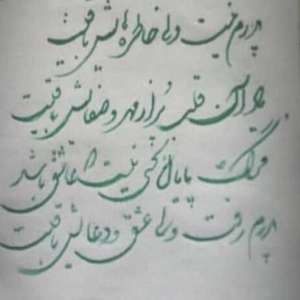 پدرم نیست ولی خاطره هایش باقیست
یاد آن قلب پر از مهر و صفایش باقیست
مرگ پایان کسی نیست که عاشق باشد
پدرم رفت ولی عشق و دعایش باقیست